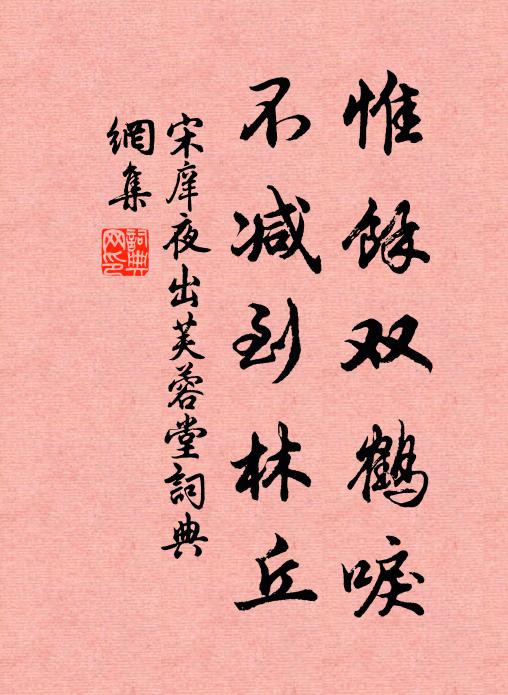 惟餘双鶴唳
不减到林丘
宋庠夜出芙蓉堂詞典
網集
詞典
网印